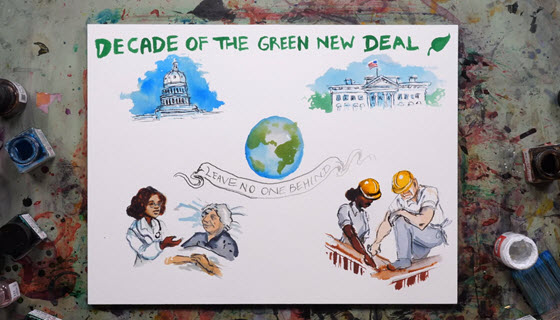 DECADE OF THE GREEN NEW DEAL
LEAVE NO ONE BEHIND